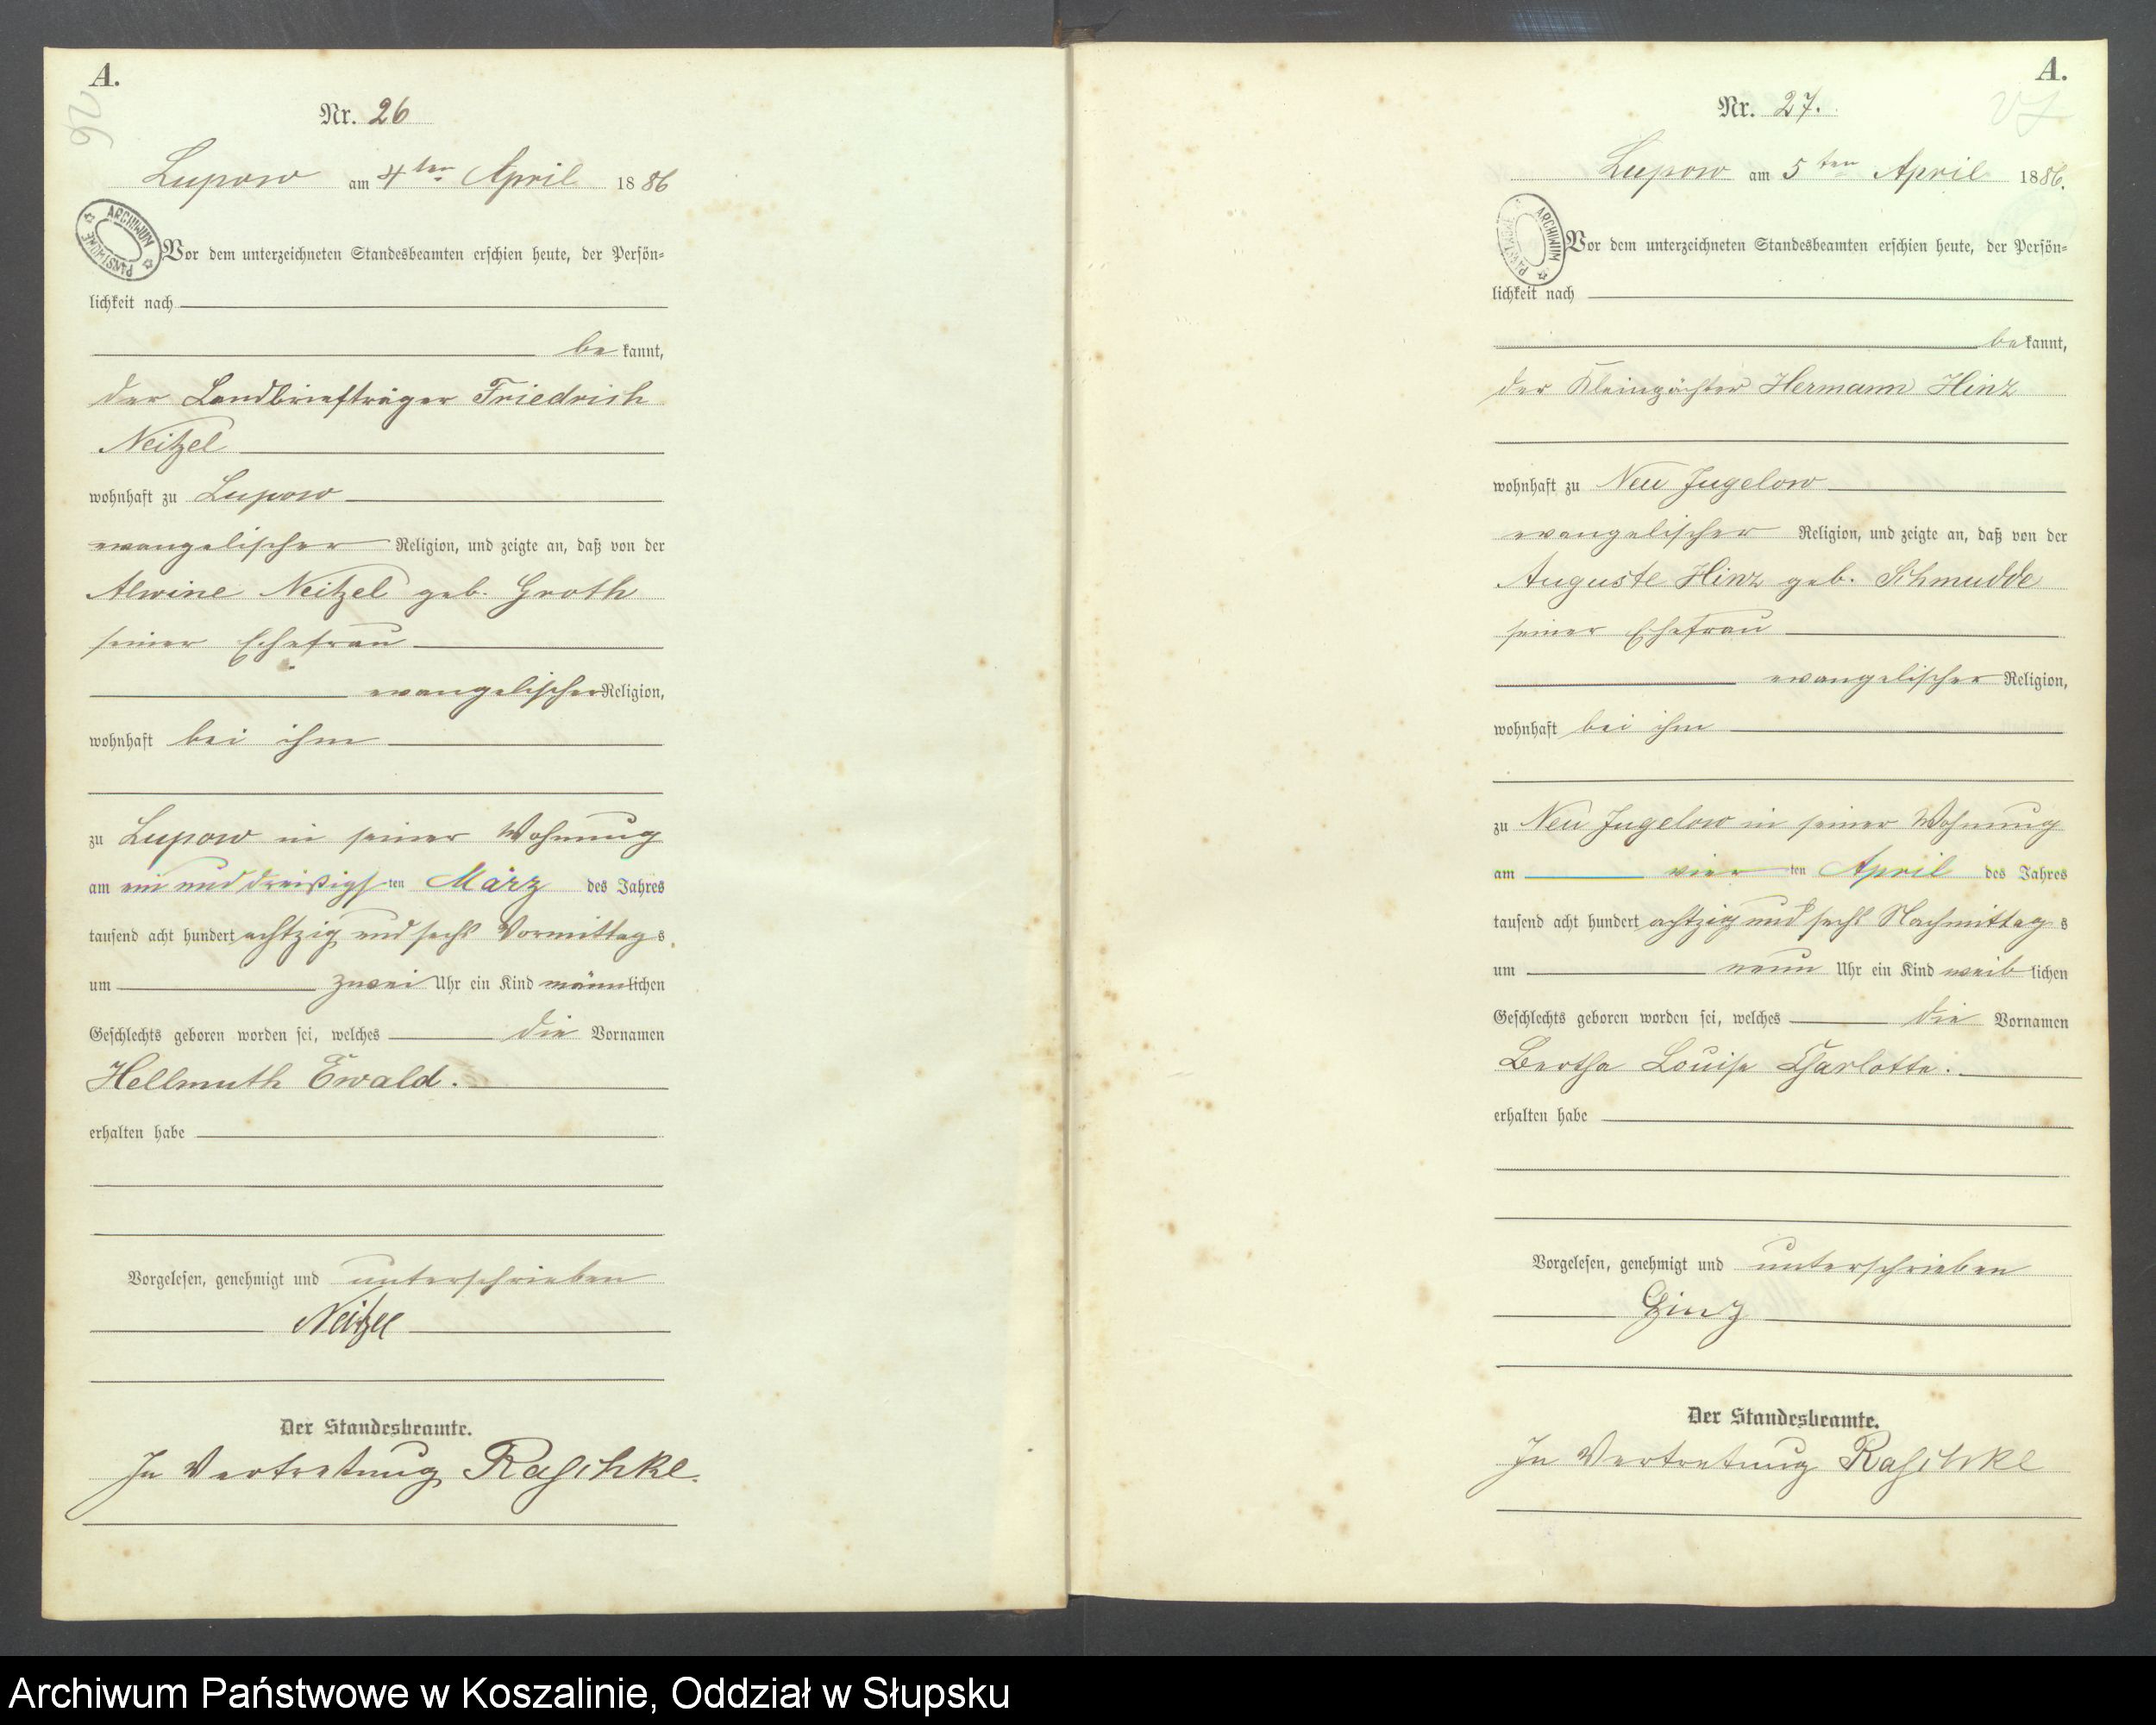 A.
26
Nr. 26
Lupow am 4ten April 1886
ARCHIWUM PAŃSTWOWE
Vor dem unterzeichneten Standesbeamten erschien heute, der Persön-
lichkeit nach
be kannt,
der Landbriefträger Friedrich
Neitzel
wohnhaft zu Lupow
evangelischer Religion, und zeigte an, daß von der
Alwine Neitzel geb. Groth
seiner Ehefrau
evangelischer Religion,
wohnhaft bei ihm
zu Lupow in seiner Wohnung
am ein und dreißigsten März des Jahres
tausend acht hundert achtzig und sechs Vormittags
um zwei Uhr ein Kind männlichen
Geschlechts geboren worden sei, welches die Vornamen
Hellmuth Ewald.
erhalten habe
Vorgelesen, genehmigt und unterschrieben
Neitzel
Der Standesbeamte.
In Vertretung Raschke.
A.
Nr. 27.
Lupow am 5ten April 1886.
ARCHIWUM PAŃSTWOWE
Vor dem unterzeichneten Standesbeamten erschien heute, der Persön-
lichkeit nach
be kannt,
der Kleinpächter Hermann Hinz
wohnhaft zu Neu Jugelow
evangelischer Religion, und zeigte an, daß von der
Auguste Hinz geb. Schmudde
seiner Ehefrau
evangelischer Religion,
wohnhaft bei ihm
zu Neu Jugelow in seiner Wohnung
am vier ten April des Jahres
tausend acht hundert achtzig und sechs Nachmittag s
um neun Uhr ein Kind weib lichen
Geschlechts geboren worden sei, welches die Vornamen
Bertha Louise Charlotte.
erhalten habe
Vorgelesen, genehmigt und unterschrieben
Hinz
Der Standesbeamte.
In Vertretung Raschke
Archiwum Państwowe w Koszalinie, Oddział w Słupsku